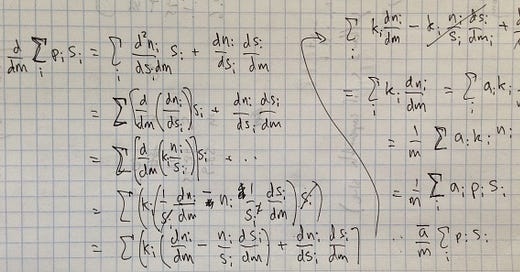 d/dm Σ_i p_i s_i = Σ_i d²n_i/ds_i dm s_i + dn_i/ds_i ds_i/dm
= Σ [d/dm (dn_i/ds_i)] s_i + dn_i/ds_i ds_i/dm
= Σ [d/dm (k_i n_i/s_i)] s_i + ..
= Σ (k_i (1/s_i dn_i/dm - n_i 1/s_i² ds_i/dm) s_i)
= Σ (k_i (dn_i/dm - n_i/s_i ds_i/dm) + dn_i/ds_i ds_i/dm]
Σ_i k_i dn_i/dm - k_i n_i/s_i ds_i/dm_i +
= Σ_i k_i dn_i/dm = Σ_i a_i k_i
= 1/m Σ a_i k_i n_i
= 1/m Σ_i a_i p_i s_i
∵ ā/m Σ_i p_i s_i